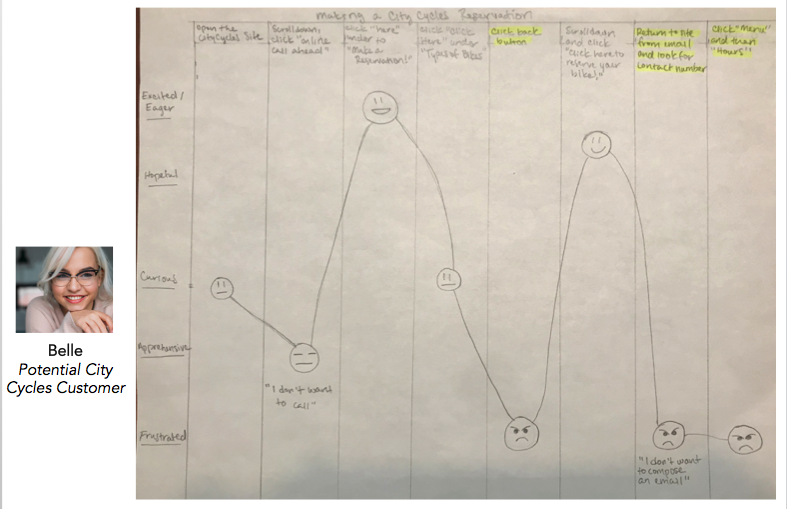 Making a City Cycles Reservation
Open the
City Cycles Site
Scroll down,
click "online
call ahead"
click "here"
under to
"Make a
Reservation!"
click "click
Here" under
"Types of Bikes"
Click back
button
Scroll down
and click
"click here to
reserve your
bike!"
Return to site
from email
and look for
contact number
Click "Menu"
and then
"Hours"
Excited/
Eager
Hopeful
Curious
Apprehensive
Frustrated
"I don't want
to call"
"I don't want
to compose
an email"
Belle
Potential City
Cycles Customer